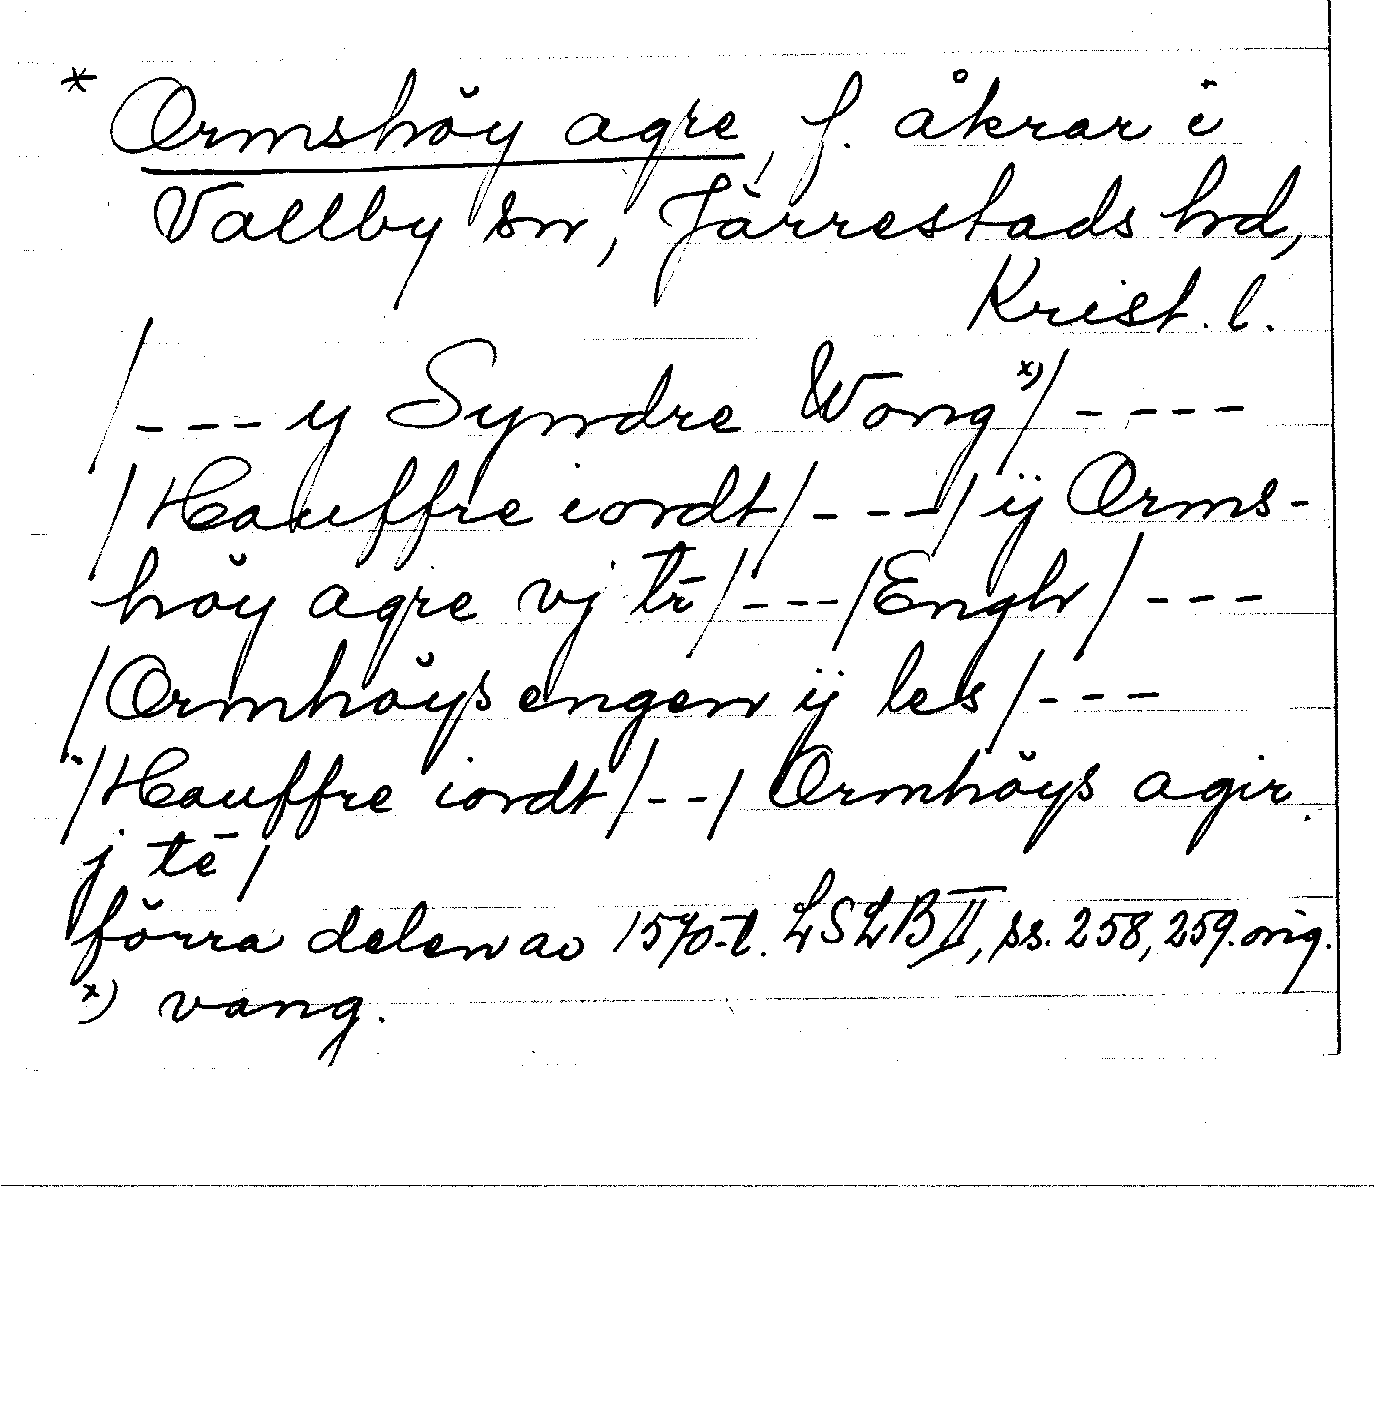 * Ormshöy agre, f. åkrar i
Vallby sn, Järrestads hd,
Krist. l.
/---y Syndre Wong x)/----
/Hauffre iordt/---/ ij Orms-
höy agre vj tr̄/---/Engh/---
/Ormhöys engen ij les/---
"/Hauffre iordt/--/ Ormhöys agir
j tē/
förra delen av 1570-t. LSLB II, ss. 258, 259. orig.
x) vang.